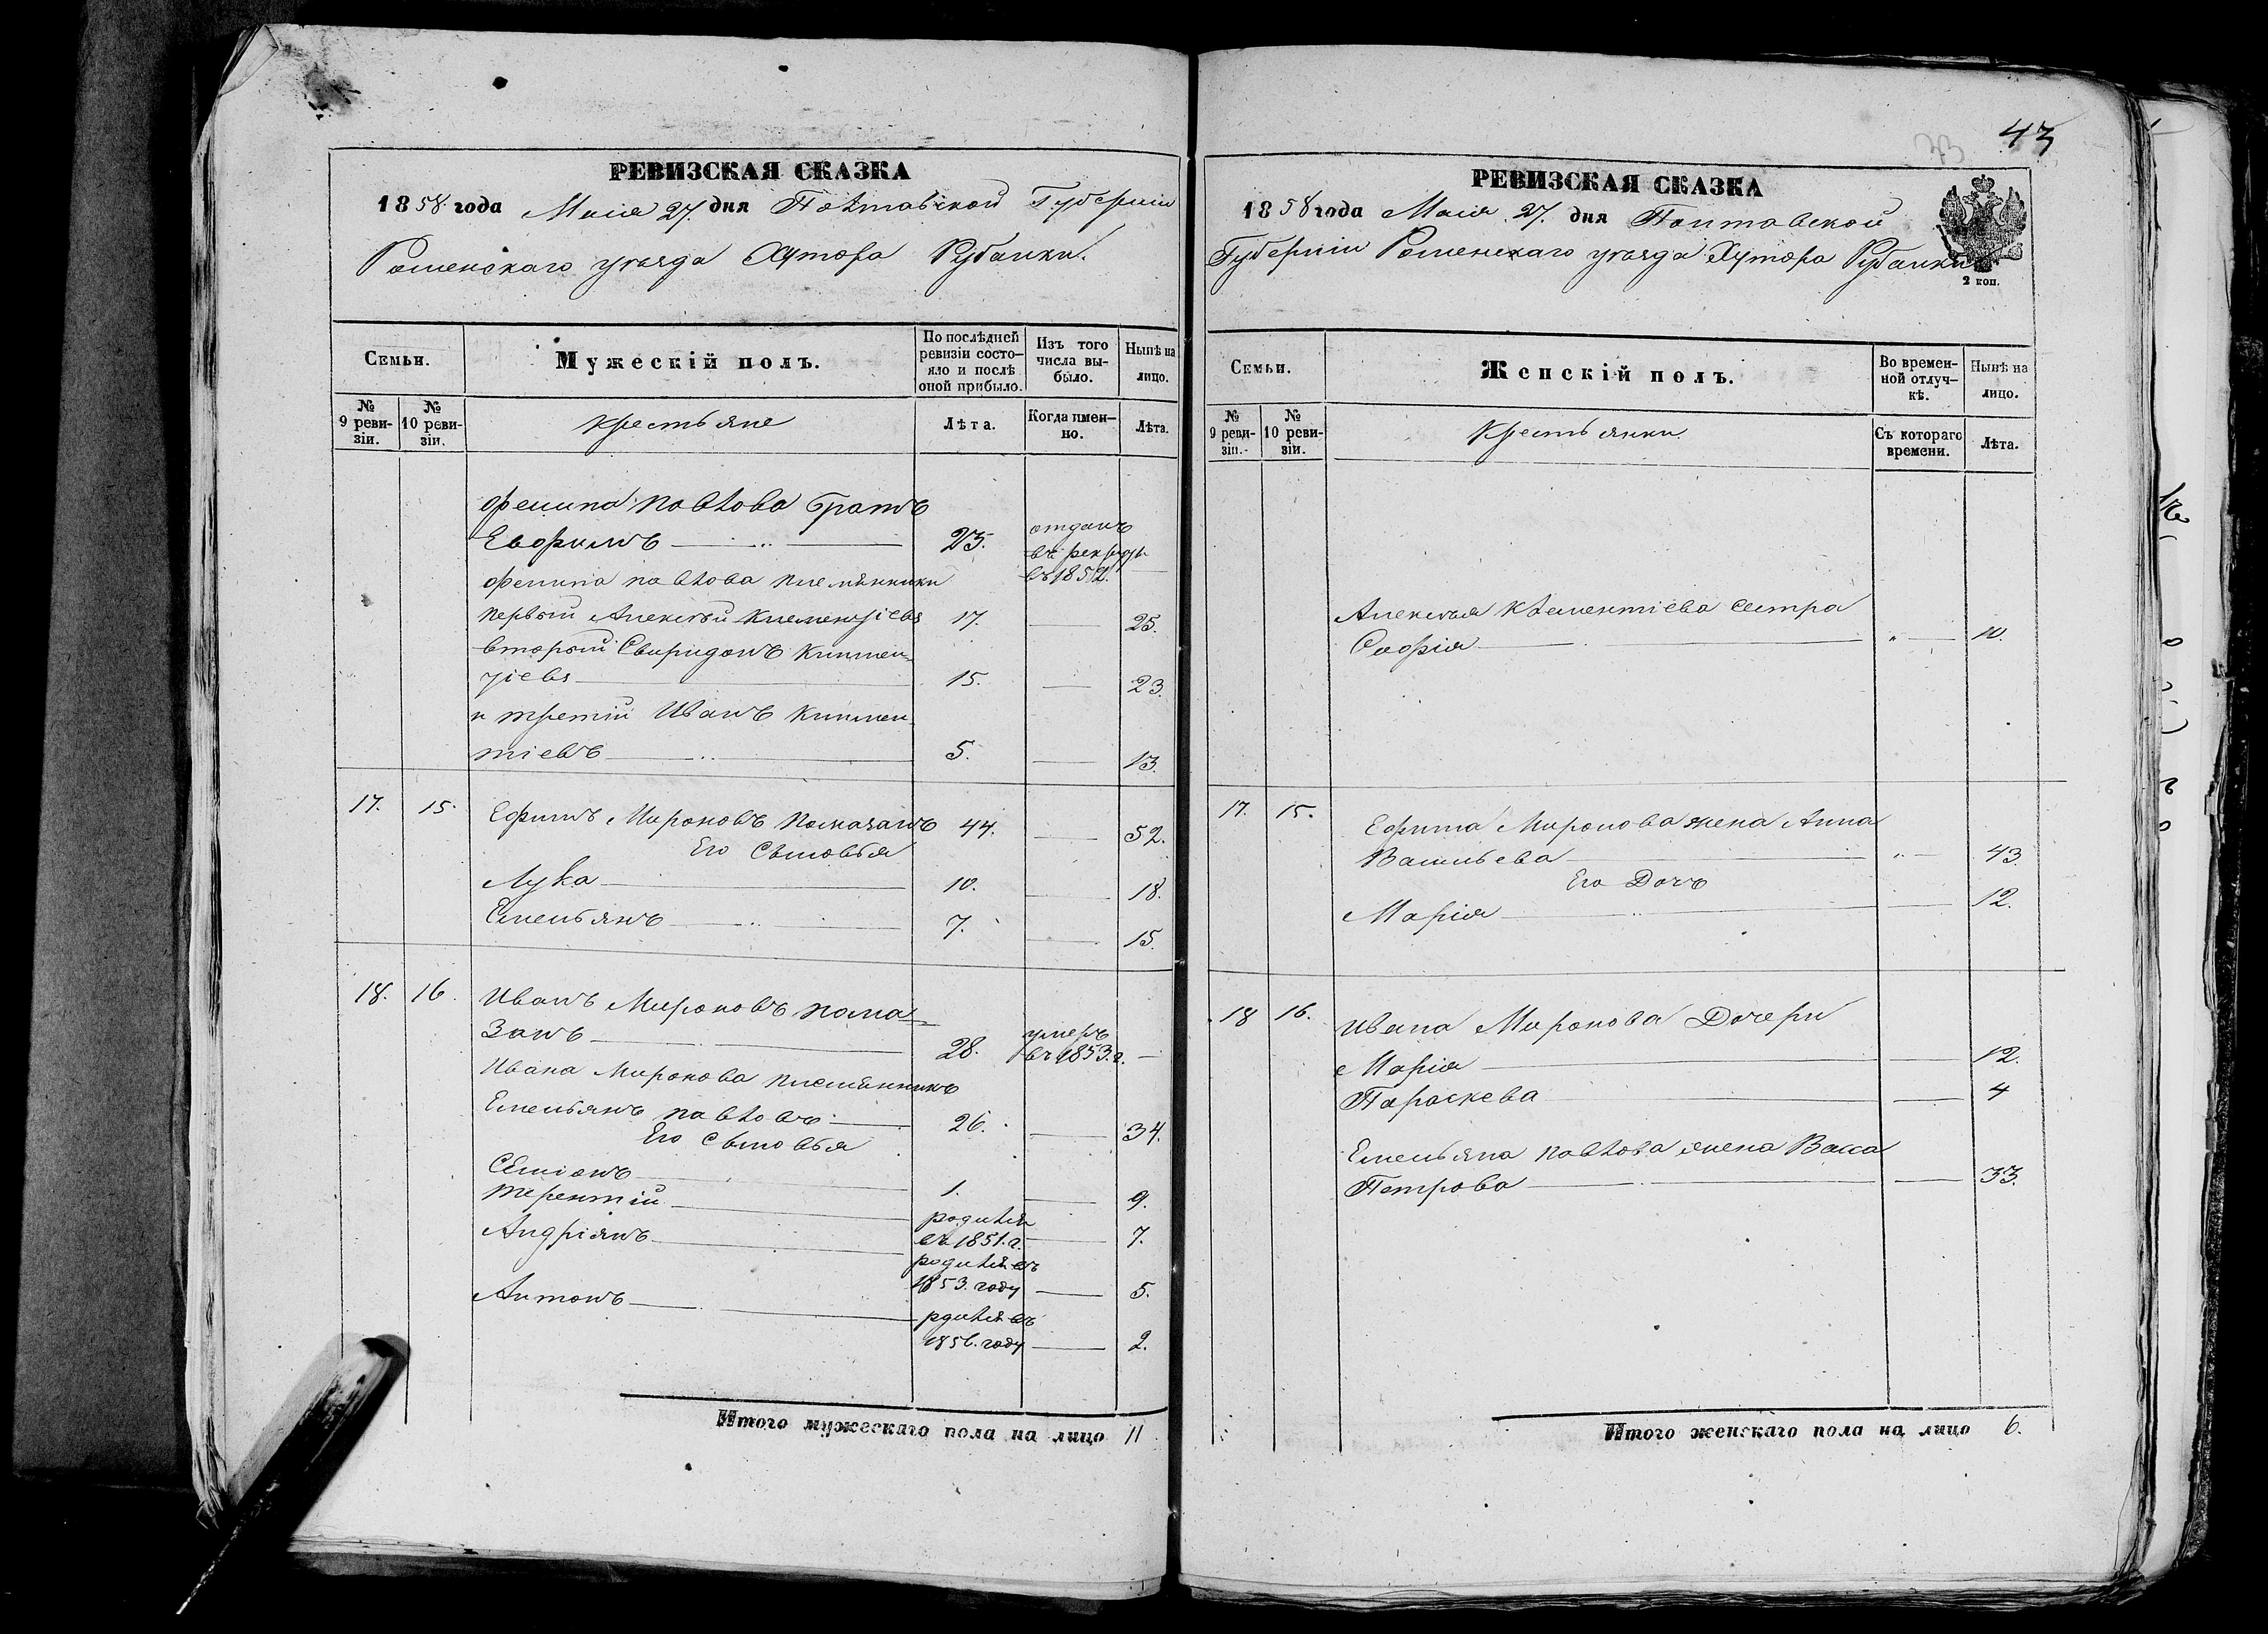 РЕВИЗСКАЯ СКАЗКА
1858 года Маія 27. дня Полтавской Губерніи
Роменскаго уѣзда Хутора Рубанки.
Семьи.
Мужескій полъ.
По послѣдней ревизіи состо-
яло и послѣ оной прибыло.
Изъ того числа вы-
было.
Нынѣ на лицо.
№ 9 реви-
зіи.
№ 10 реви-
зіи.
Крестьяне
Лѣта.
Когда имен-
но.
Лѣта.
Павлова братъ
Евфимъ 23. отданъ
въ рекруты
въ 1852.
Павлова племянники
первый Алексѣй Климентіевъ 17. 25.
вторый Свиридонъ Климен-
тіевъ 15. 23.
и третій Иванъ Климен-
тіевъ 5. 13.
17. 15. Ефимъ Мироновъ Помазанъ 44. 52.
Его Сыновья
Лука 10. 18.
Емельянъ 7. 15.
18. 16. Иванъ Мироновъ Пома=
занъ 28. умеръ
въ 1853. г.
Ивана Миронова племянникъ
Емельянъ Павловъ 26. 34.
Его Сыновья
Семіонъ 1. 9.
Терентій родился
въ 1851. г. 7.
Андріянъ родился въ
1853. году 5.
Антонъ рдился въ
1856. году 2.
Итого мужескаго пола на лицо 11
43
33
РЕВИЗСКАЯ СКАЗКА
1858 года Маія 27. дня Полтавской
Губерніи Роменскаго уѣзда Хутора Рубанки
2 коп.
Семьи.
Женскій полъ.
Во времен-
ной отлуч-
кѣ.
Нынѣ на лицо.
№ 9 реви-
зіи.
№ 10 реви-
зіи.
Крестьянки
Съ котораго времени.
Лѣта.
Алексѣя Клементіева сестра
Софія 10.
17. 15. Ефима Миронова жена Анна
Васильева 43.
Его Дочь
Марія 12.
18 16. Ивана Миронова Дочери
Марія 12.
Параскева 4
Емельяна Павлова жена Васса
Петрова 33.
Итого женскаго пола на лицо 6.